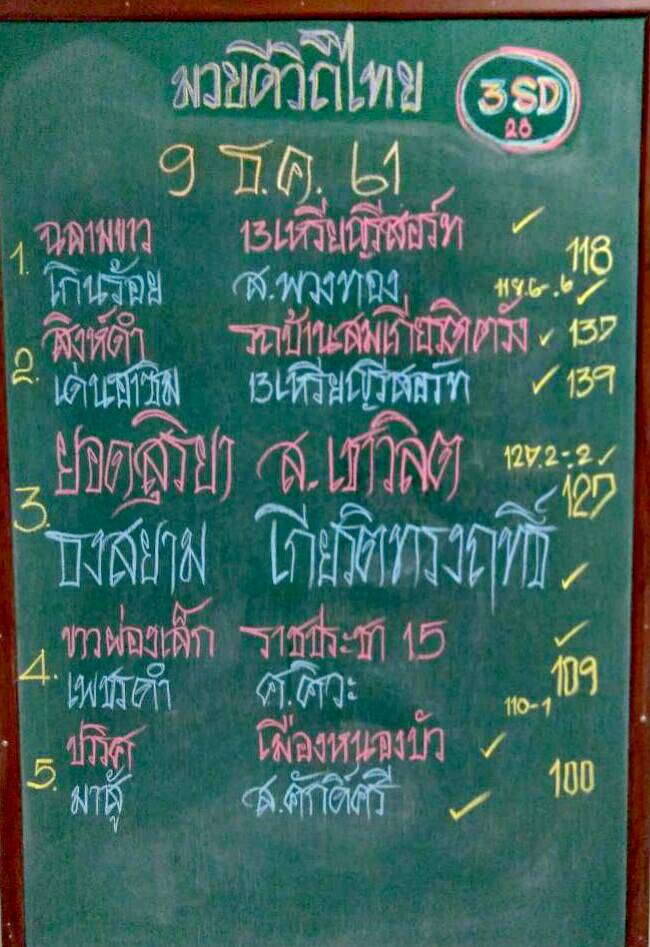 มวยดีวิถีไทย
3SD
28
9 ธ.ค. 61
1. ฉลามขาว 13เหรียญรีสอร์ท ✓ 118
เกินร้อย ส.พวงทอง ✓
2. สิงห์ดำ รถบ้านสมเกียรติตรัง ✓ 137
เด่นฮาซิม 13เหรียญรีสอร์ท ✓ 139
3. ยอดสุริยา ส.เชาวลิต 127.2-.2 ✓
127
ธงสยาม เกียรติทรงฤทธิ์ ✓
4. ขาวผ่องเล็ก ราชประชา 15 ✓ 109
เพชรดำ ศ.ศิวะ 110-1
5. ปรีศ เมืองหนองบัว ✓ 100
มาสู้ ส.ศักดิ์ศรี ✓